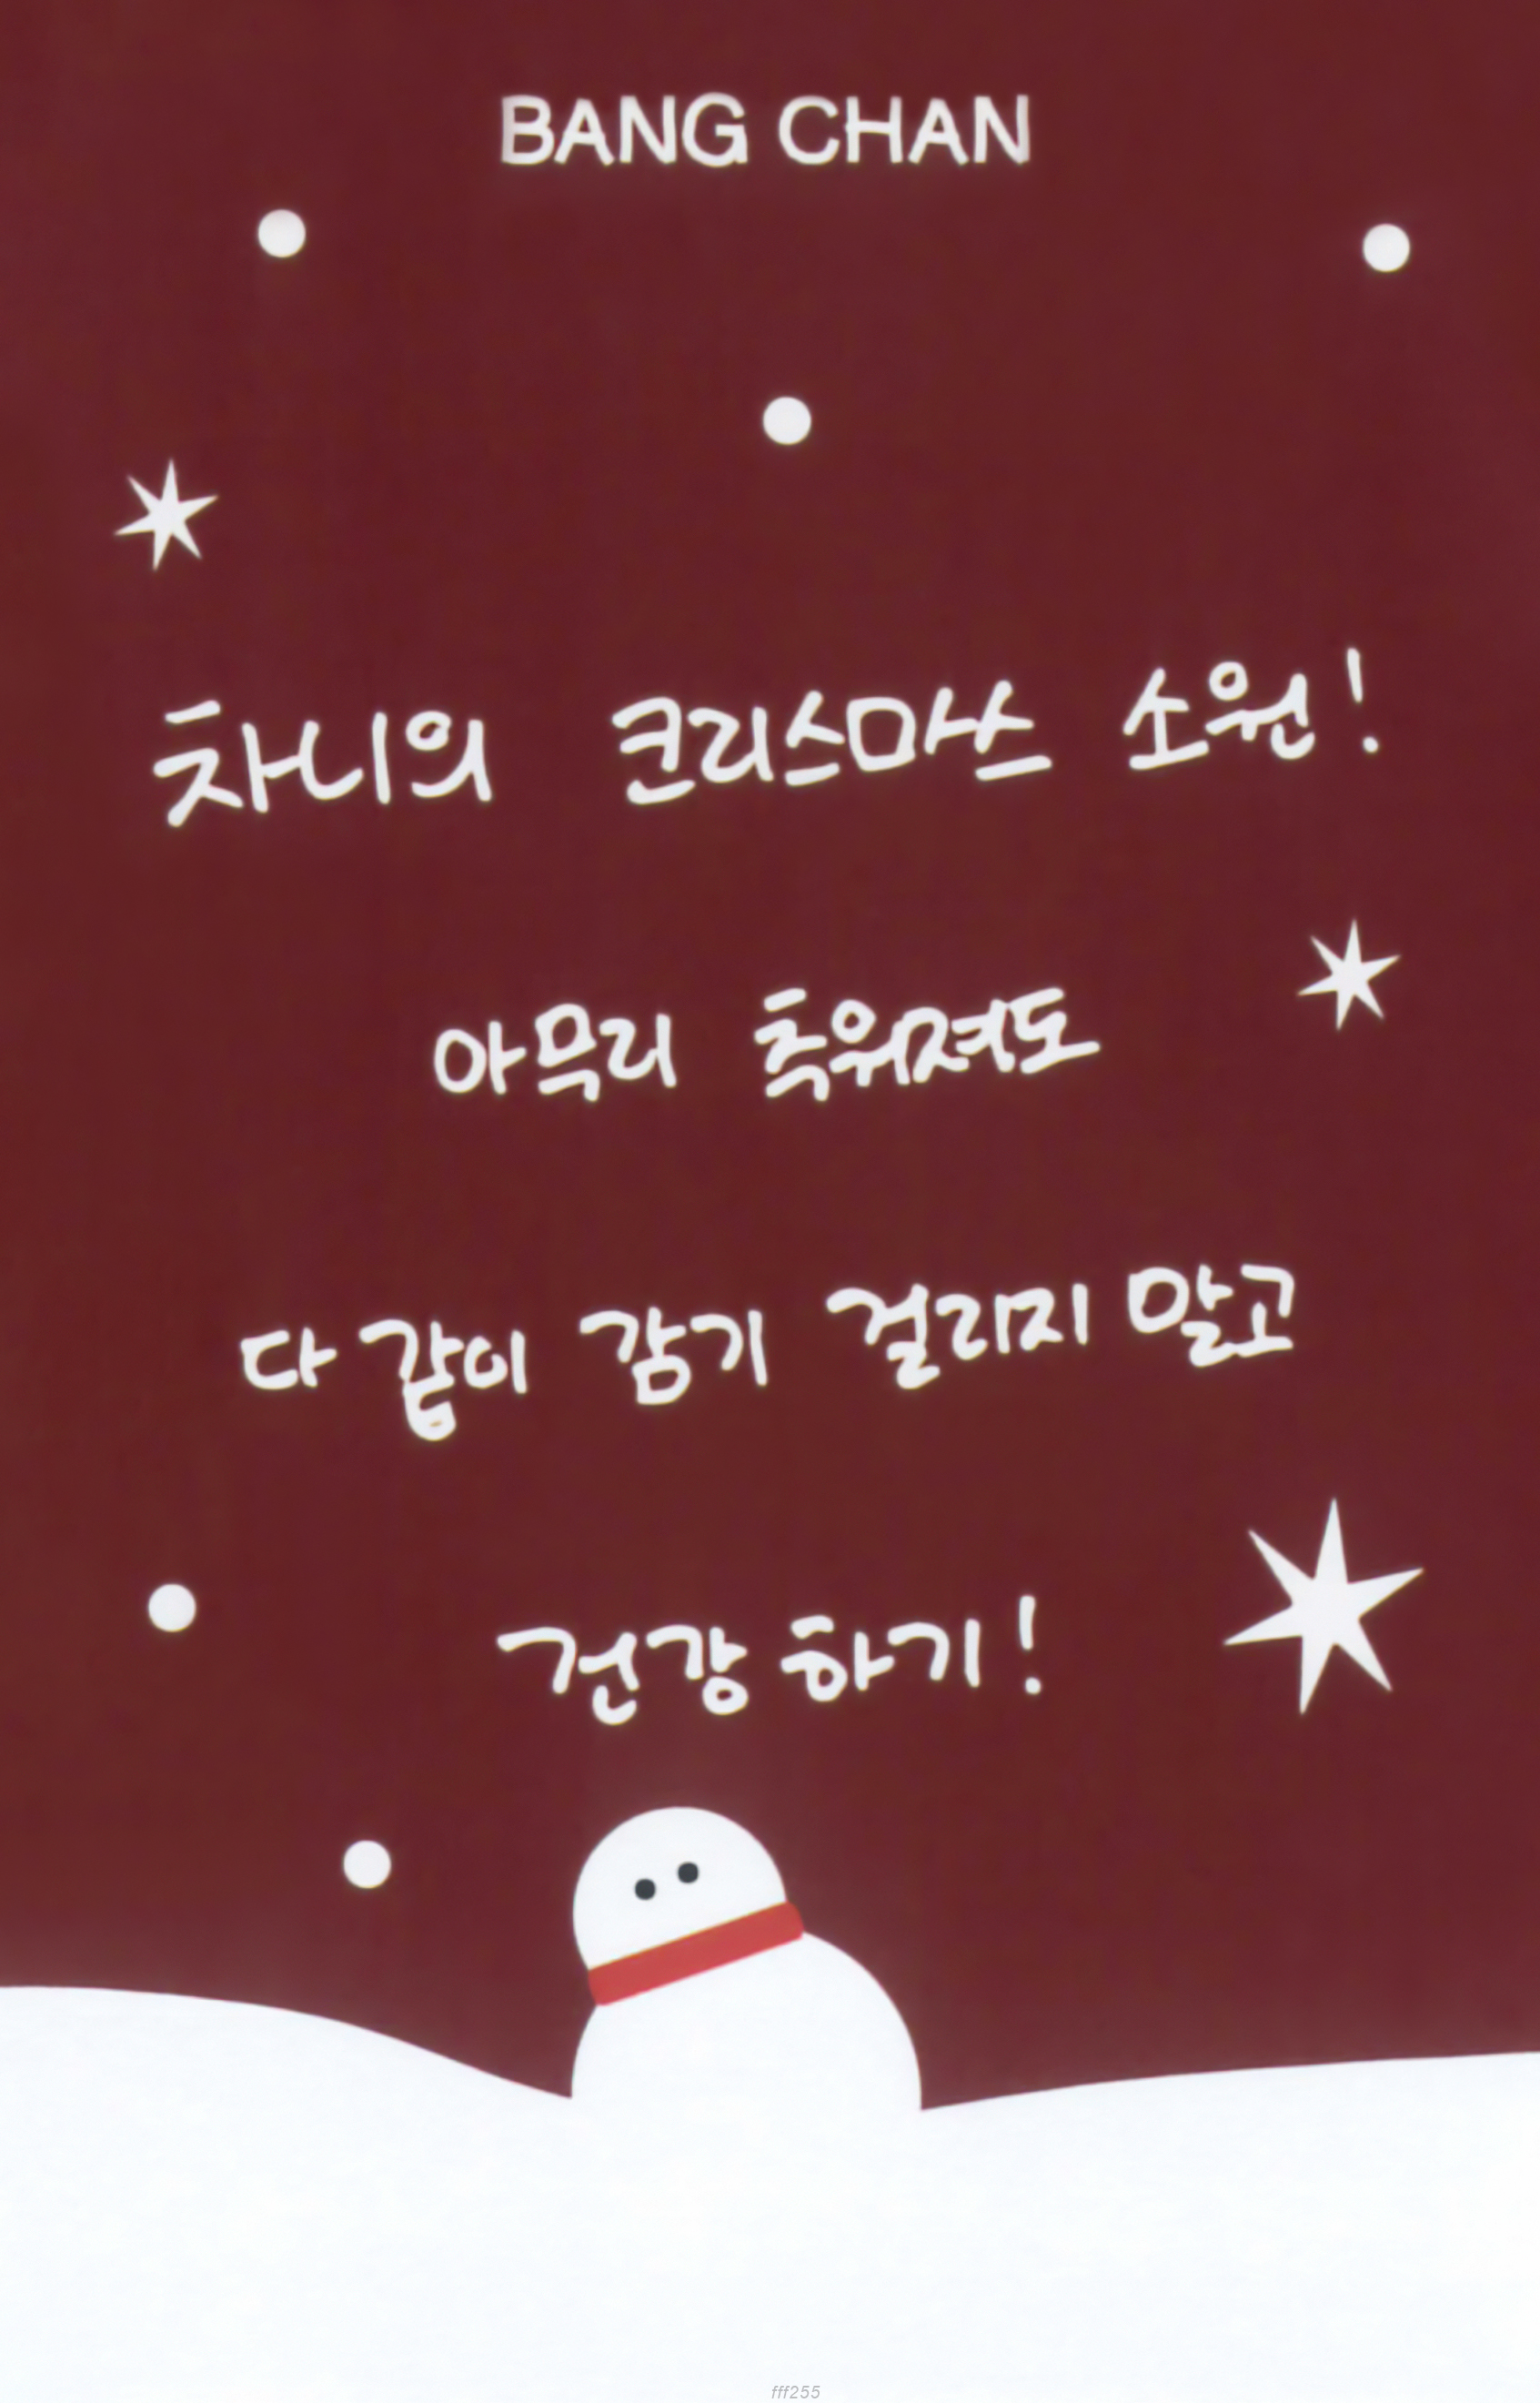 BANG CHAN
차니의 크리스마스 소원!
아무리 추워져도
다 같이 감기 걸리지 말고
건강하기!
fff255